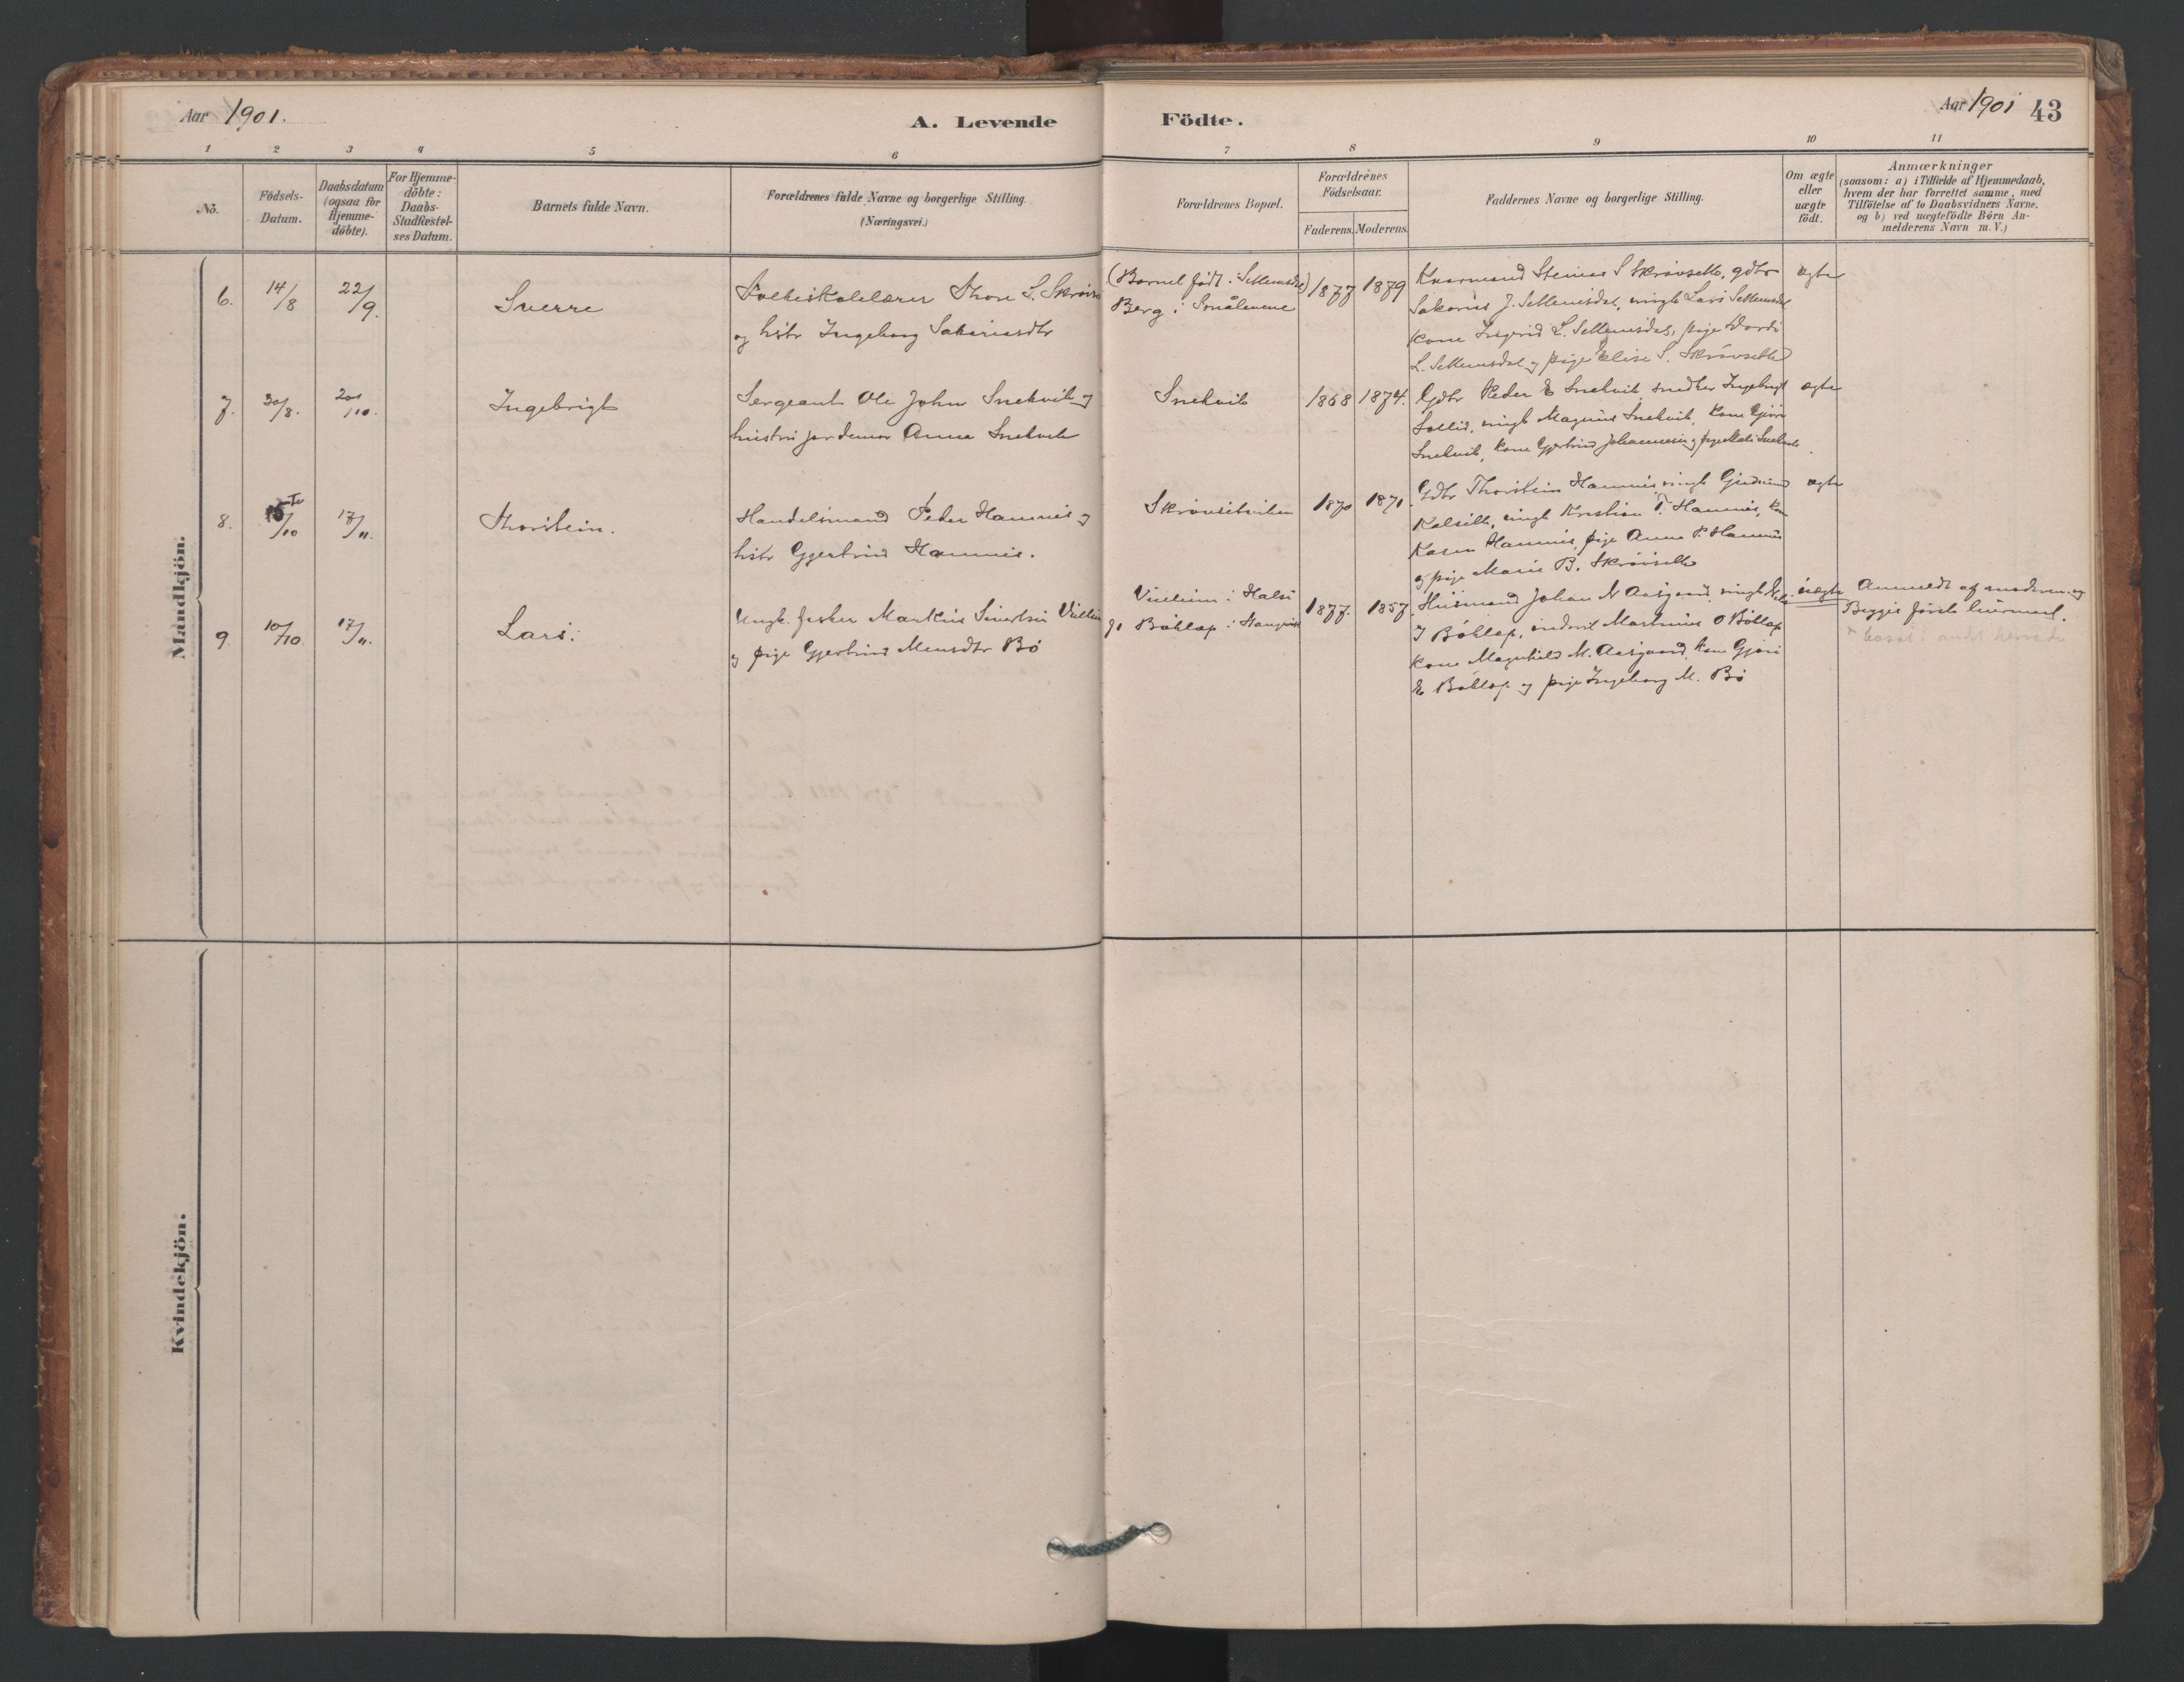 Aar 1901.
A. Levende Födte.
Aar 1901 43
1 2 3 4 5 6 7 8 9 10 11
No.
Födsels-
Datum.
Daabsdatum
(ogsaa for
Hjemme-
döbte).
For Hjemme-
döbte:
Daabs-
Stadfæstel-
ses Datum.
Barnets fulde Navn.
Forældrenes fulde Navne og borgerlige Stilling.
(Næringsvei.)
Forældrenes Bopæl.
Forældrenes
Födselsaar.
Faderens. Moderens.
Faddernes Navne og borgerlige Stilling.
Om ægte
eller
uægte
födt.
Anmærkninger
(saasom: a) i Tilfælde af Hjemmedaab,
hvem der har forrettet samme, med
Tilföielse af to Daabsvidners Navne,
og b) ved uægtefödte Börn An-
melderens Navn m.V.)
Mandkjön.
6. 14/8 22/9. Sverre
Folkeskolelærer Thore S.
og hstr Ingeborg Sakariasdtr
(Barnet født i Settemsdal)
Berg i Smålenene
1877 1879
Kaarmand Steinar S Skrøvseth, gdbr
Sakarias J. Settemsdal, ungk Lars Settemsdal
Kone Ingerid L. Settemsdal, pige
L. Settemsdal og pige Elise S. Skrøvseth
ægte
7. 30/8. 20/10. Ingebrigt
Sergeant Ole John Snekvik og
hustru jordemor Anne Snekvik
Snekvik
1868 1874.
Gdbr Peder E Snekvik, snedker Ingebrigt
Sollid, ungk Magnus Snekvik, Kone
Snekvik, kone Gjertrud Johannesen og pige Snekvik
ægte
8. 15/10 17/11. Thorstein.
Handelsmand Peder Hamnes og
hstr Gjertrud Hamnes.
1870 1871.
Gdbr Thorstein Hamnes, ungk Gudmund
ungk Kristian T. Hamnes, kone
Karen Hamnes, pige Anne P. Hamnes
og pige Marie B. Skrøvseth
ægte
9. 10/10. 17/11. Lars.
Ungk. fisker Martinus Sivertsen
og pige Gjertrud Monsdtr Bö
i Halsa
og Böklep i
1877. 1857.
Husmand Johan N Aasgaard, ungk
J Böklep, inderst Martinus O Böklep
kone Magnhild M. Aasgaard, kone
E Böklep og pige Ingeborg M. Bö
uægte
Anmeldt af moderen og
Begges første leiermaal.
Kvindekjön.